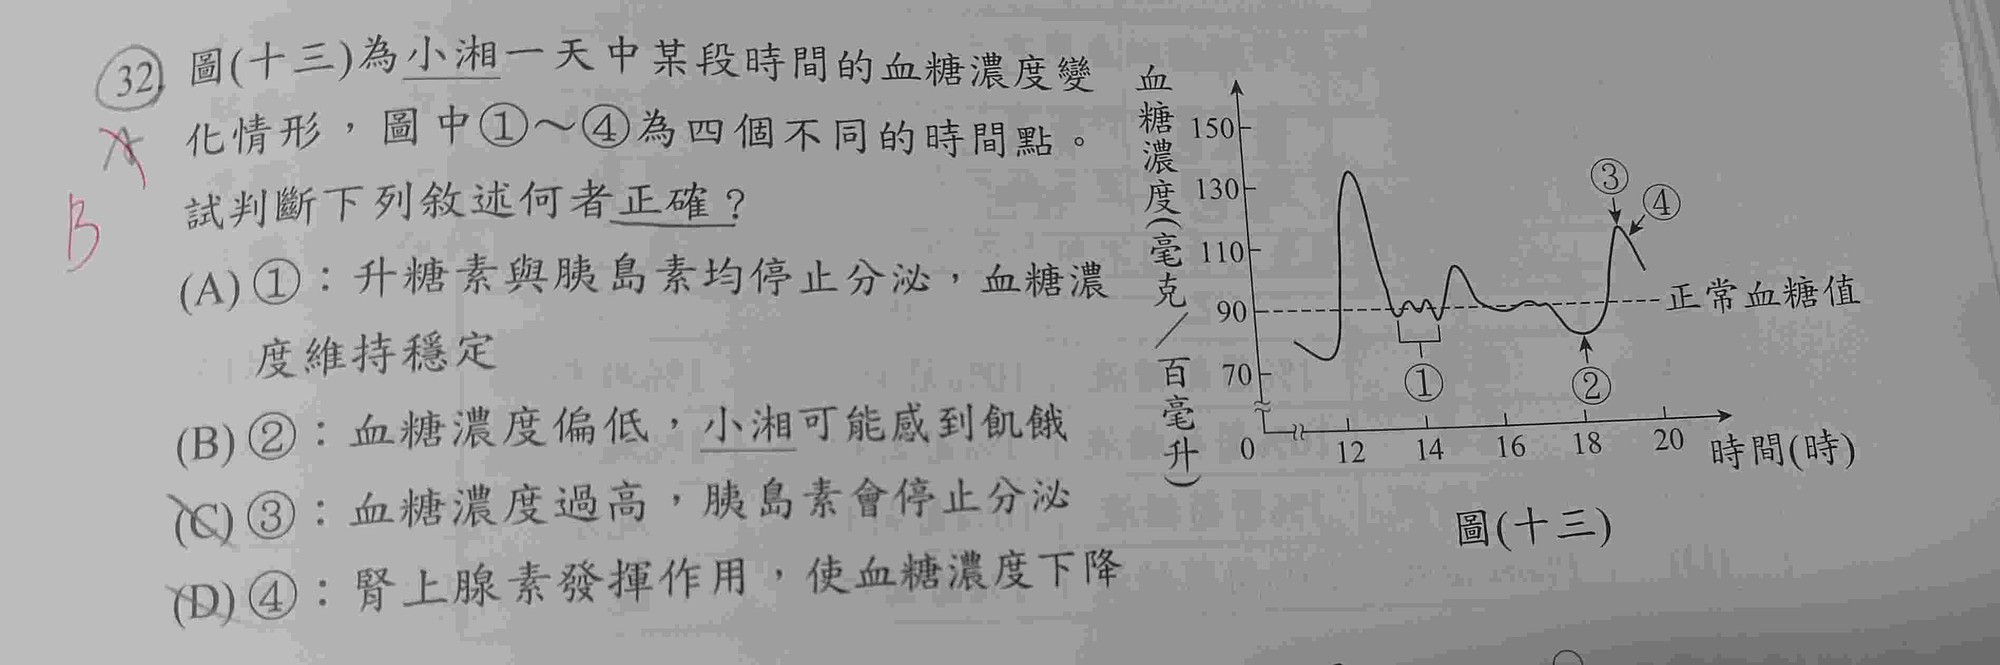 32. 圖(十三)為小湘一天中某段時間的血糖濃度變
化情形，圖中①～④為四個不同的時間點。
試判斷下列敘述何者正確？
(A)①：升糖素與胰島素均停止分泌，血糖濃
度維持穩定
(B)②：血糖濃度偏低，小湘可能感到飢餓
(C)③：血糖濃度過高，胰島素會停止分泌
(D)④：腎上腺素發揮作用，使血糖濃度下降
A
B
血糖濃度(毫克／百毫升)
150
130
110
90
70
0
③
④
正常血糖值
①
②
12 14 16 18 20 時間(時)
圖(十三)